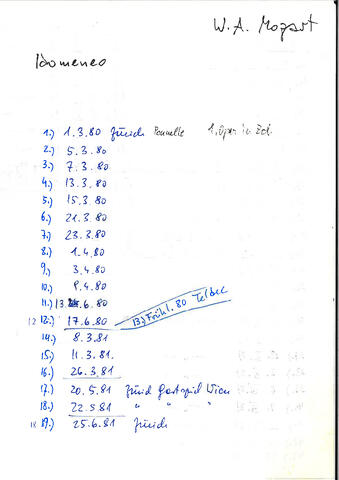 W. A. Mozart
Idomeneo
1.) 1.3.80 Zürich Ponnelle 1. Oper in Zch.
2.) 5.3.80
3.) 7.3.80
4.) 13.3.80
5.) 15.3.80
6.) 21.3.80
7.) 23.3.80
8.) 1.4.80
9.) 3.4.80
10.) 9.4.80
11.) 13.6.80
12 12.) 17.6.80 13.) Frühl. 80 Teldec
14.) 8.3.81
15.) 11.3.81.
16.) 26.3.81
17.) 20.5.81 Zürich Gastspiel Wien
18.) 22.5.81 " " "
18 19.) 25.6.81 Zürich